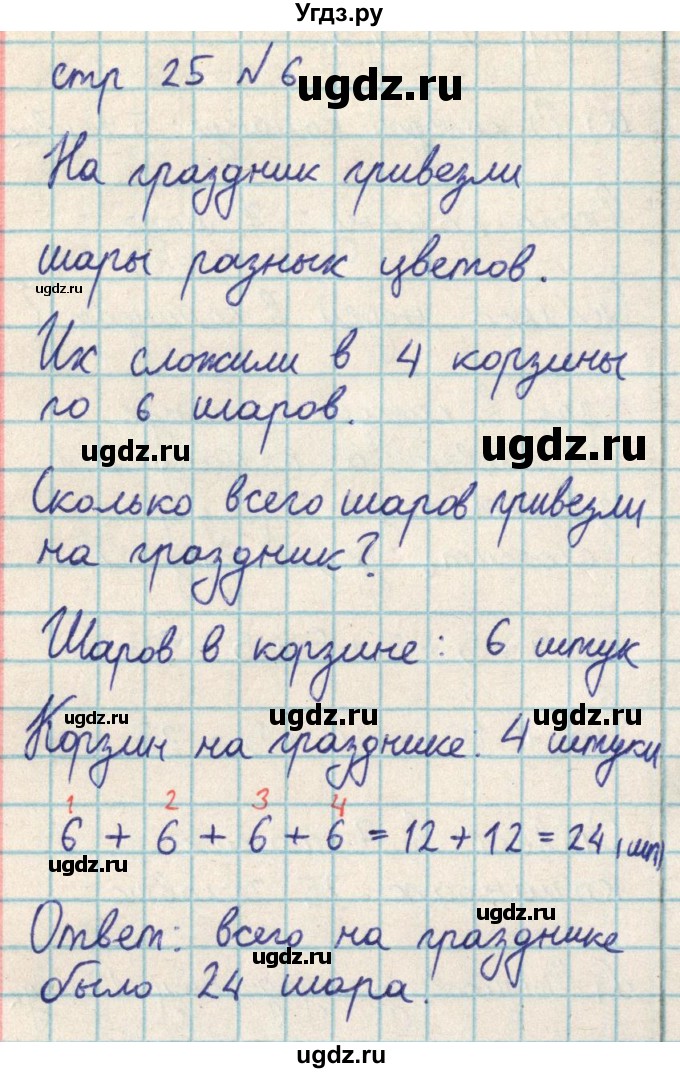 Угдз.ру
стр 25 № 6
ugdz.ru
На праздник привезли
шары разных цветов.
ugdz.ru
Их сложили в 4 корзины
по 6 шаров.
ugdz.ru
ugdz.ru
Сколько всего шаров привезли
на праздник?
Шаров в корзине: 6 штук
ugdz.ru
ugdz.ru
ugdz.ru
Корзин на празднике: 4 штуки
1 2 3 4
6 + 6 + 6 + 6 = 12 + 12 = 24 (шт)
ugdz.ru
ugdz.ru
Ответ: всего на празднике
ugdz.ru
было 24 шара.
ugdz.ru